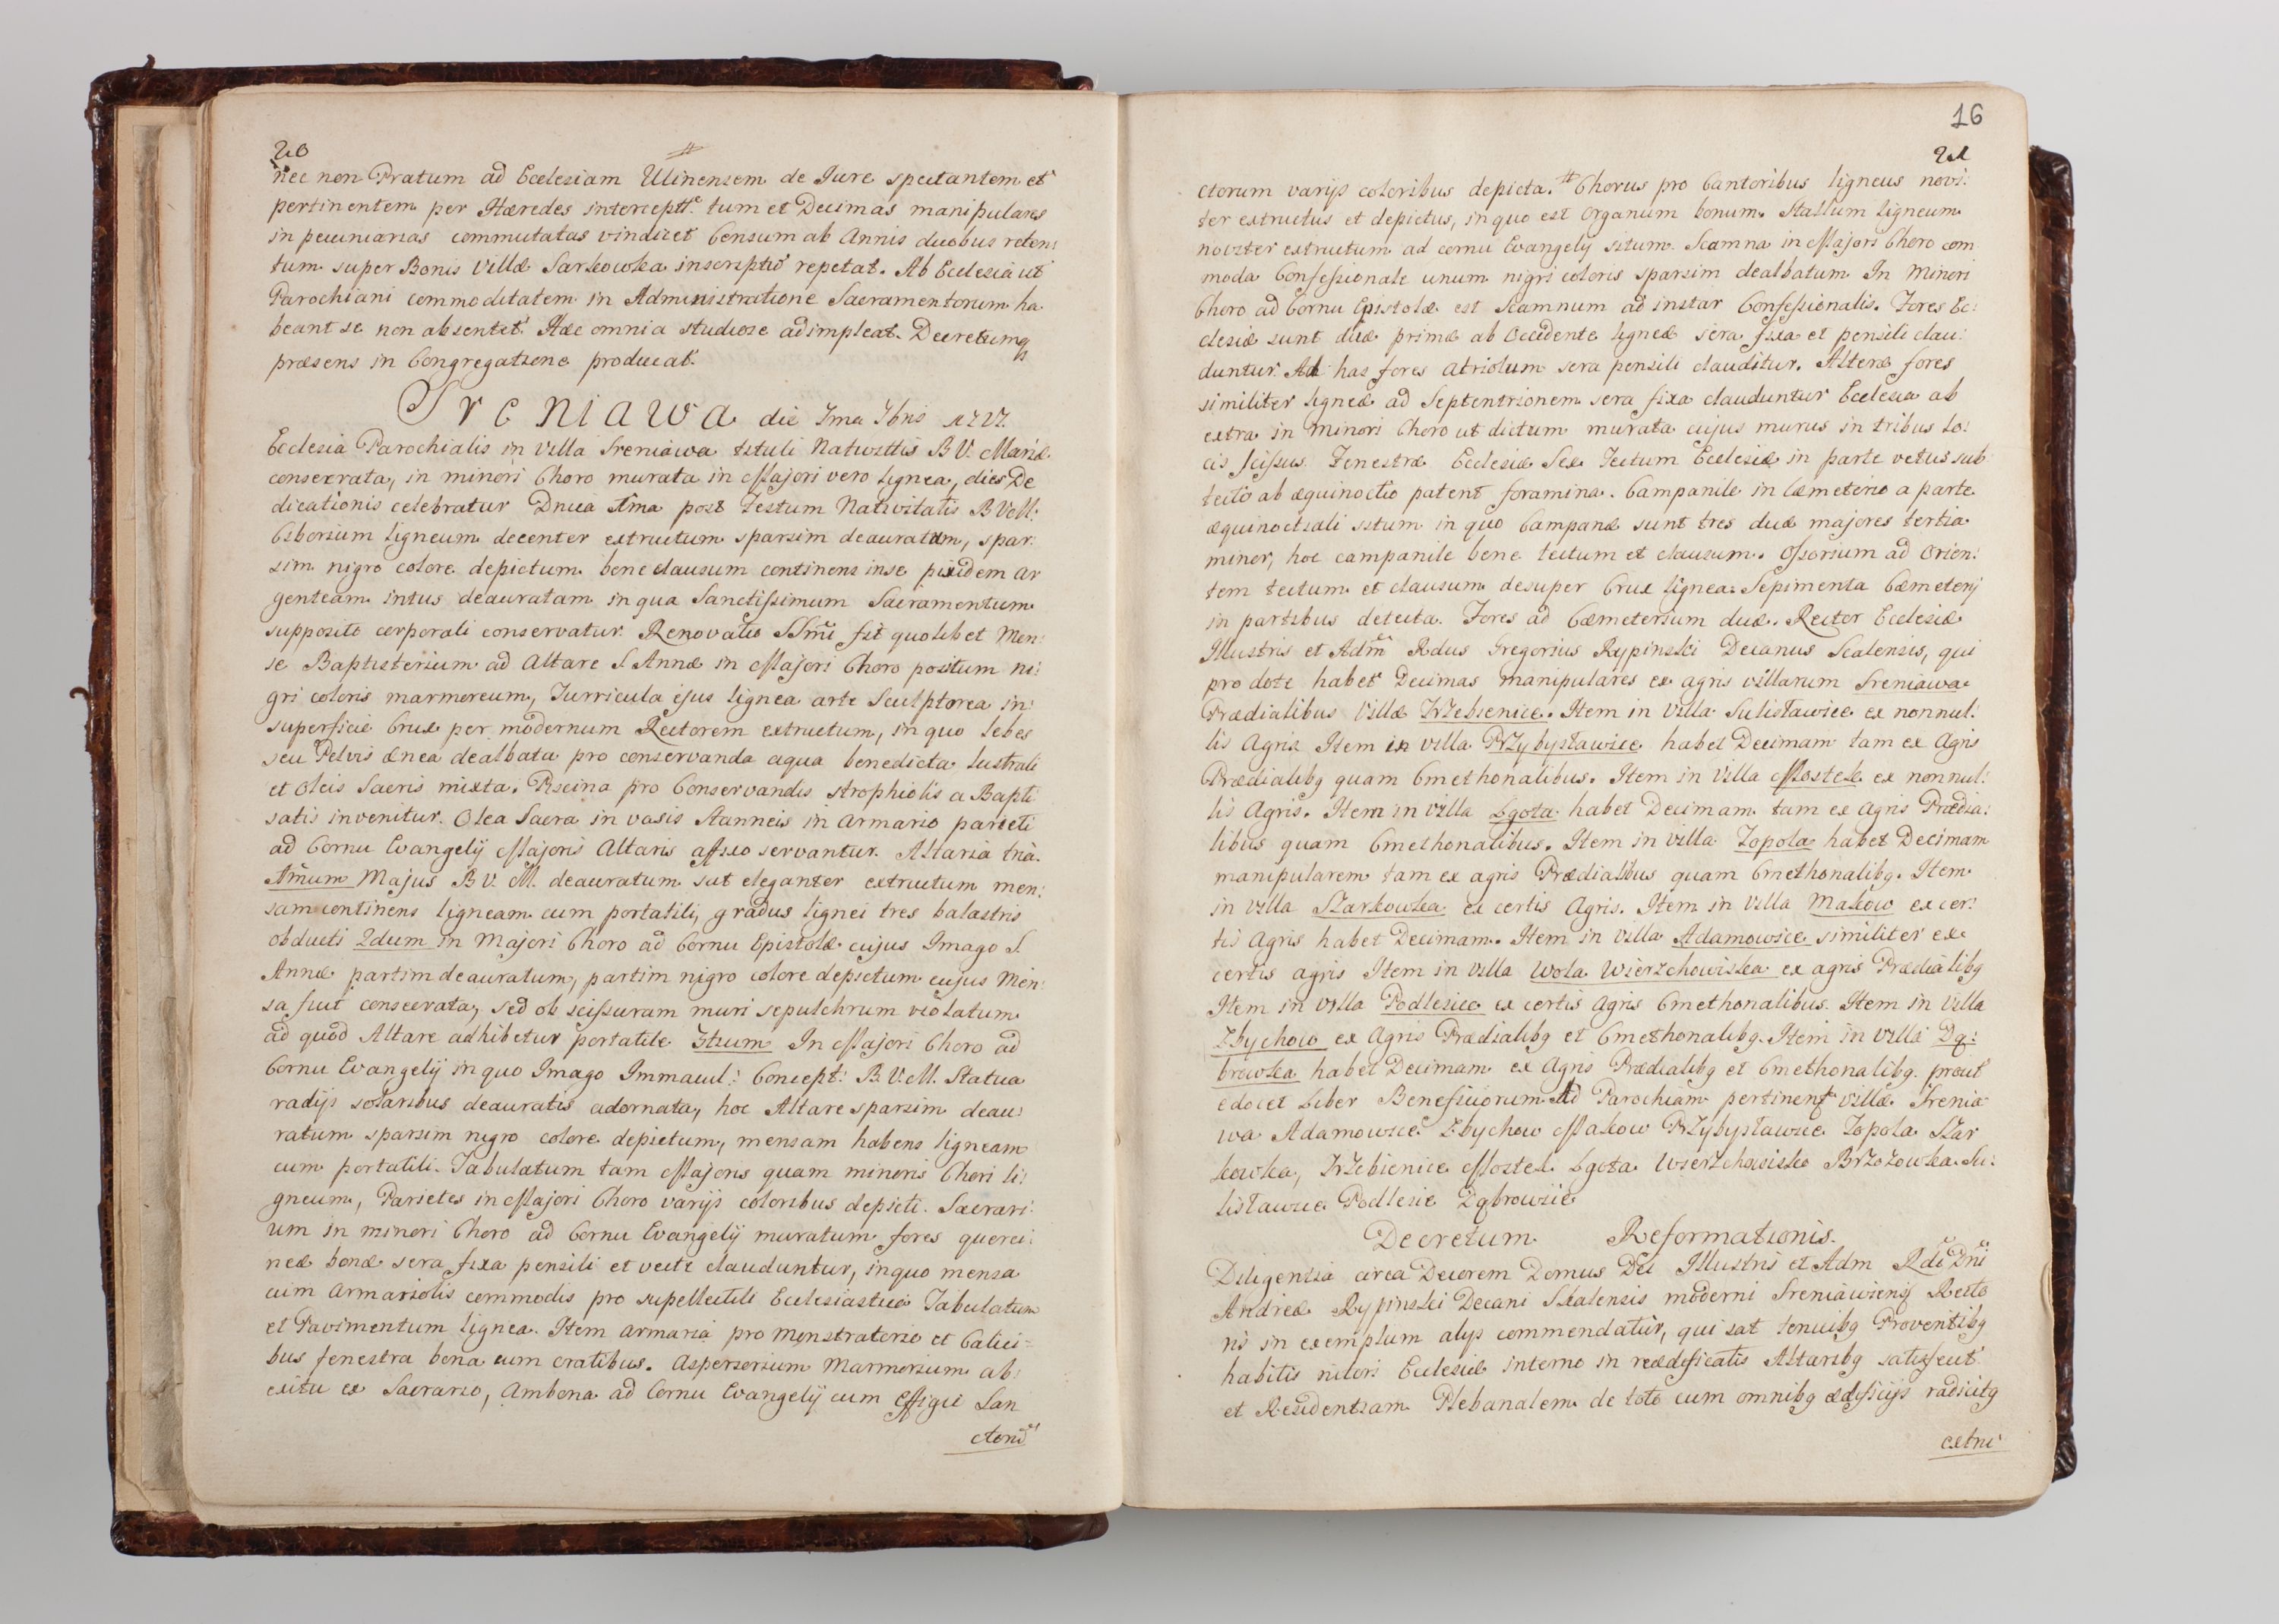 20
nec non Pratum ad Ecclesiam Ulinensem de Jure spectantem et
pertinentem per Hæredes intercept. tum et Decimas manipulares
in pecuniarias commutatas vindicet Censum ab Annis duobus reten:
tum super Bonis Villæ Sarkowka inscriptū repetat. Ab Ecclesia ut
Parochiani commoditatem in Administratione Sacramentorum ha
beant se non absentet. Hæc omnia studiose adimpleat. Decretumq
præsens in Congregatione producat.
Sreniawa die 7ma 7bris 1727.
Ecclesia Parochialis in Villa Sreniawa tituli Nativittis B V. Mariæ
consecrata, in minori Choro murata in Majori vero lignea, dies De
dicationis celebratur Dnica 1ma post Festum Nativitatis B V M.
Ciborium ligneum decenter extructum sparsim deauratum, spar:
sim nigro colore depictum bene clausum continens in se pixidem ar
genteam intus deauratam in qua Sanctissimum Sacramentum
supposito corporali conservatur. Renovatio SSmi fit quolibet Men:
se Baptisterium ad Altare S. Annæ in Majori Choro positum ni:
gri coloris marmoreum, Turricula ejus lignea arte Sculptorea in:
superficie Crux per modernum Rectorem extructum, in quo lebes
seu Pelvis ænea dealbata pro conservanda aqua benedicta lustrali
et Oleis Sacris mixta. Piscina pro Conservandis strophiolis a Bapti
satis invenitur. Olea Sacra in vasis Stanneis in Armario parieti
ad Cornu Evangelij Majoris Altaris affixo servantur. Altaria tria.
1mum Majus B V. M. deauratum sat eleganter extructum men:
sam continens ligneam cum portatili, gradus lignei tres balastris
obducti 2dum in Majori Choro ad Cornu Epistolæ cujus Imago S.
Annæ partim deauratum, partim nigro colore depictum cujus Men:
sa fuit consecrata, sed ob scissuram muri sepulchrum violatum
ad quod Altare adhibetur portatile 3tium In Majori Choro ad
Cornu Evangelij in quo Imago Immacul: Concept: B. V. M. Statua
radijs solaribus deauratis adornata, hoc Altare sparsim deau:
ratum sparsim nigro colore depictum, mensam habens ligneam
cum portatili. Tabulatum tam Majoris quam minoris Chori li:
gneum, Parietes in Majori Choro varijs coloribus depicti. Sacrari:
um in minori Choro ad Cornu Evangelij muratum fores querci:
neæ bonæ sera fixa pensili et vecte clauduntur, in quo mensa
cum Armariolis commodis pro supellectili Ecclesiastica Tabulatum
et Pavimentum lignea. Item armaria pro Monstratorio et Calici=
bus fenestra bona cum cratibus. Aspersorium Marmorium ab:
exitu ex Sacrario, Ambona ad Cornu Evangelij cum Effigie San
ctorū
16
21
ctorum varijs coloribus depicta. # Chorus pro Cantoribus ligneus novi:
ter extructus et depictus, in quo est Organum bonum. Stallum ligneum
noviter extructum ad cornu Evangelij situm. Scamna in Majori Choro com
moda Confessionale unum nigri coloris sparsim dealbatum In Minori
Choro ad Cornu Epistolæ est Scamnum ad instar Confessionalis. Fores Ec:
clesiæ sunt duæ primæ ab Occidente ligneæ sera fixa et pensili clau:
duntur. Ad has fores atriolum sera pensili clauditur. Alteræ fores
similiter ligneæ ad Septentrionem sera fixa clauduntur Ecclesia ab
extra in Minori Choro ut dictum murata cujus murus in tribus lo:
cis scissus. Fenestræ Ecclesiæ Sex Tectum Ecclesiæ in parte vetus sub
tecto ab æquinoctio patent foramina. Campanile in Cæmeterio a parte
æquinoctiali situm in quo Campanæ sunt tres duæ majores tertia
minor, hoc campanile bene tectum et clausum. Ossorium ad Orien:
tem tectum et clausum desuper Crux lignea. Sepimenta Cæmeterij
in partibus detecta. Fores ad Cæmeterium duæ. Rector Ecclesiæ
Illustris et Adm Rdus Gregorius Rypinski Decanus Scalensis, qui
pro dote habet Decimas manipulares ex agris villarum Sreniawa
Prædialibus Villæ Trzebienice. Item in Villa Sulisławice ex nonnul:
lis Agris Item in Villa Przybysławice habet Decimam tam ex Agris
Prædialibq quam Cmethonalibus. Item in Villa Mostek ex nonnul:
lis Agris. Item in Villa Lgota habet Decimam tam ex Agris Prædia:
libus quam Cmethonalibus. Item in Villa Zopola habet Decimam
manipularem tam ex agris Prædialibus quam Cmethonalibq. Item
in Villa Szarkowka ex certis Agris. Item in Villa Makow ex cer:
tis Agris habet Decimam. Item in Villa Adamowice similiter ex
certis agris Item in Villa Wola Wierzchowiska ex agris Prædialibq
Item in Villa Podlesice ex certis Agris Cmethonalibus. Item in Villa
Zbychow ex Agris Prædialibq et Cmethonalibq. Item in Villa Dą:
browka habet Decimam ex Agris Prædialibq et Cmethonalibq. prout
edocet Liber Beneficiorum Ad Parochiam pertinent Villæ. Srenia
wa Adamowice Zbychow Makow Przybysławice Zopola Szar
kowka, Trzebienice Mostek Lgota Wierzchowisko Brzozowka. Su:
lisławice Podlesie Dąbrowice
Decretum Reformationis.
Diligentia circa Decorem Domus Dei Illustris et Adm Rdi Dni
Andreæ Rypinski Decani Skalensis moderni Sreniawiensis Recto
ris in exemplum alijs commendatur, qui sat tenuibq Proventibq
habitis nitori Ecclesiæ interno in reædificatis Altaribq satisfecit
et Residentiam Plebanalem de toto cum omnibq ædificijs radicitq
extru